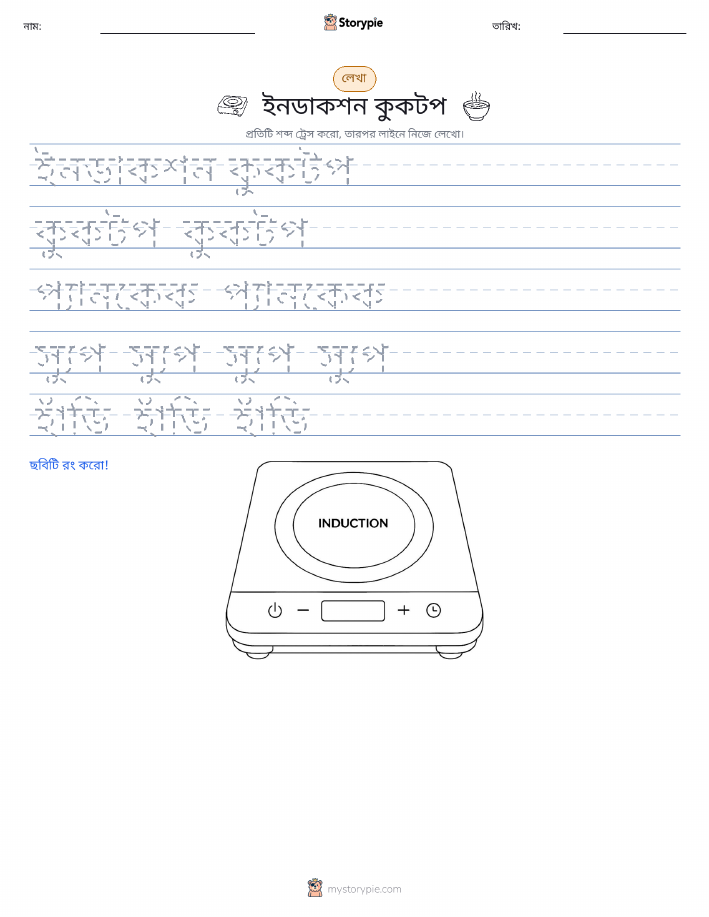 নাম:
Storypie
তারিখ:
লেখা
ইনডাকশন কুকটপ
প্রতিটি শব্দ ট্রেস করো, তারপর লাইনে নিজে লেখো।
ইনডাকশন কুকটপ
কুকটপ কুকটপ
প্যানকেক প্যানকেক
স্যুপ স্যুপ স্যুপ স্যুপ
হাঁড়ি হাঁড়ি হাঁড়ি
ছবিটি রং করো!
INDUCTION
mystorypie.com